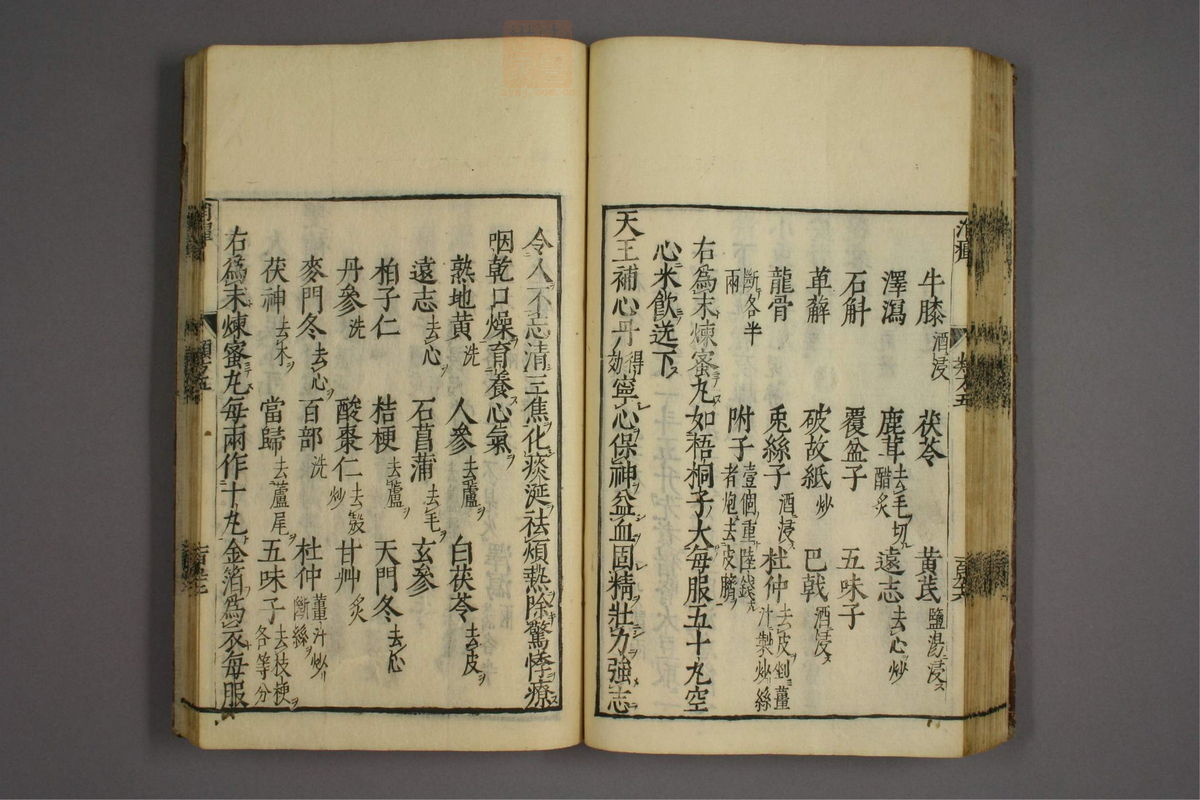 牛膝酒浸 茯苓 黄芪鹽湯浸ス
澤瀉 鹿茸去毛切醋炙 遠志去心炒
石斛 覆盆子 五味子
萆薢 破故紙炒 巴戟酒浸ス
龍骨 兎絲子酒浸ス 杜仲去皮剉薑汁製炒絲
斷各半兩 附子壹個重陸錢者炮去皮臍ヲ
右爲末煉蜜丸如梧桐子大毎服五十丸空
心米飲送下ス
天王補心丹得効寧心保神益血固精壯力強志
令人不忘清三焦化痰涎祛煩熱除驚悸療
咽乾口燥育養心氣
熟地黄洗 人參去蘆ヲ 白茯苓去皮ヲ
遠志去心ヲ 石菖蒲去毛ヲ 玄參
柏子仁 桔梗去蘆ヲ 天門冬去心
丹參洗 酸棗仁去殻ヲ炒 甘艸炙
麥門冬去心ヲ 百部洗 杜仲薑汁炒斷絲ヲ
茯神去木ヲ 當歸去蘆尾ヲ 五味子去枝梗ヲ各等分
右爲末煉蜜丸毎兩作十丸金箔爲衣毎服